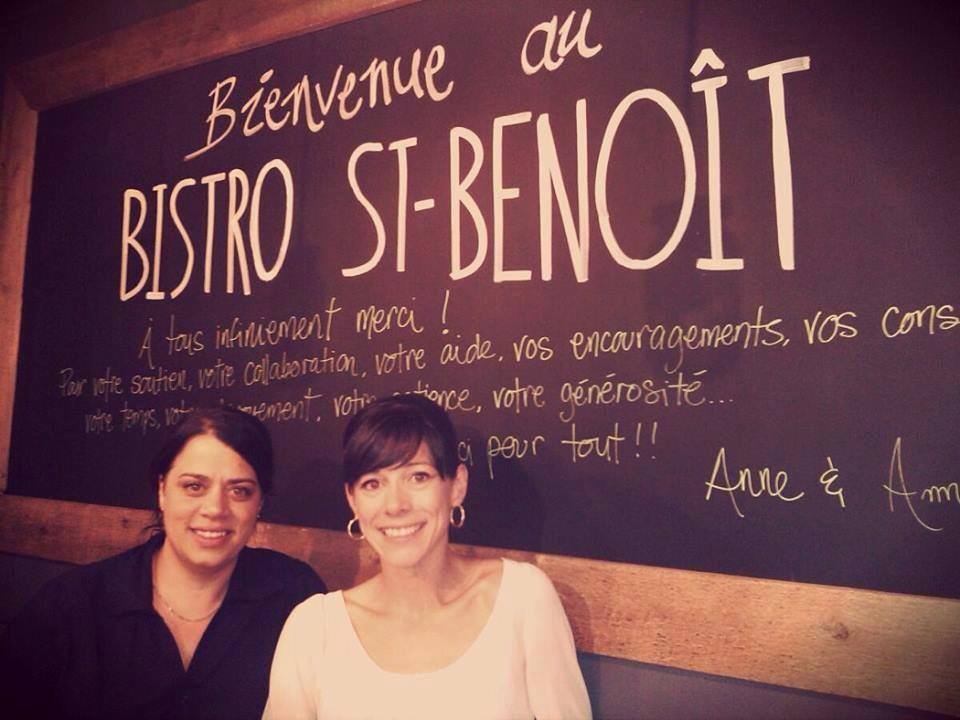 Bienvenue au
BISTRO ST-BENOÎT
À tous infiniement merci !
Pour votre soutien, votre collaboration, votre aide, vos encouragements, vos cons
votre temps, votre générosité...
pour tout !!
Anne &